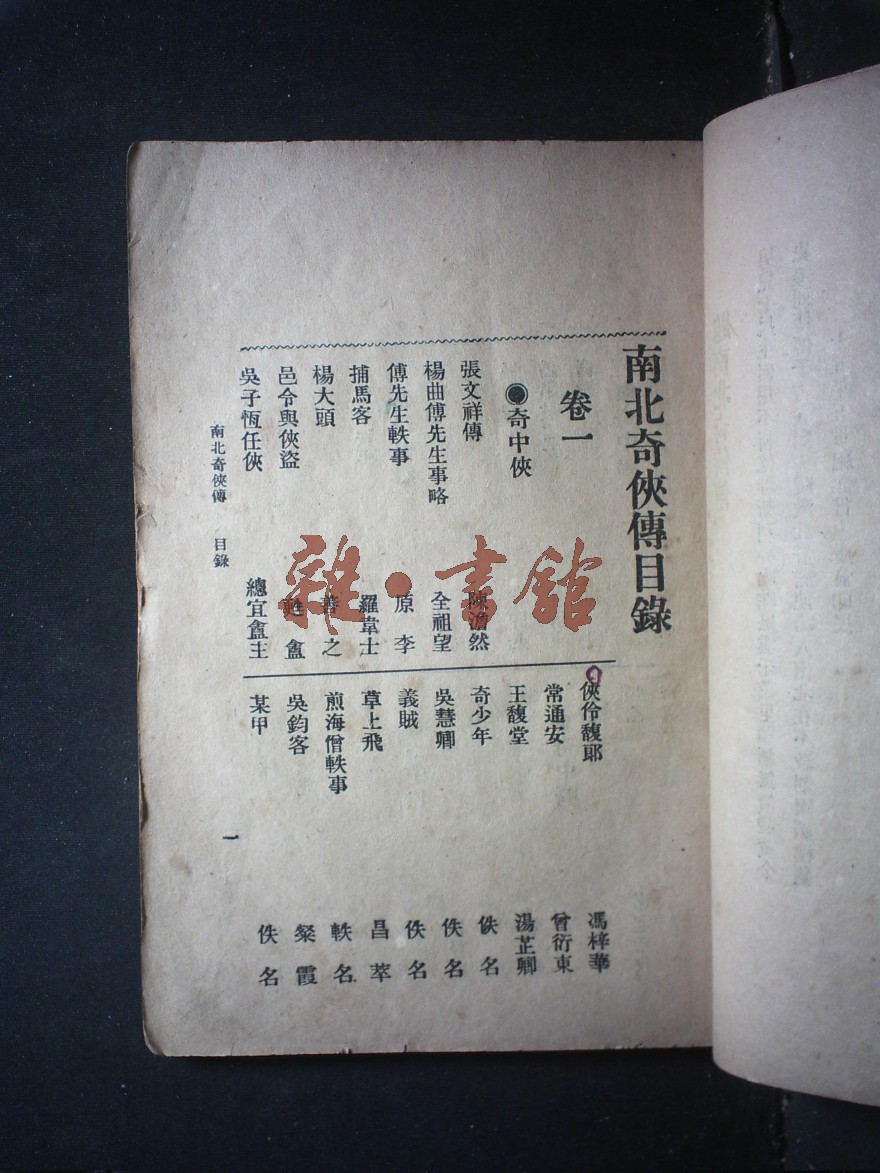 南北奇俠傳目錄
卷一
●奇中俠
張文祥傳 陳澹然
楊曲傅先生事略 全祖望
傅先生軼事 原李
捕馬客 羅韋士
楊大頭 善之
邑令與俠盜 甦盦
吳子恆任俠 總宜盦主
俠伶馥郎 馮梓華
常通安 曾衍東
王馥堂 湯芷卿
奇少年 佚名
吳慧卿 佚名
義賊 佚名
草上飛 昌萃
煎海僧軼事 軼名
吳鈞客 粲霞
某甲 佚名
南北奇俠傳 目錄
一
雜·書館